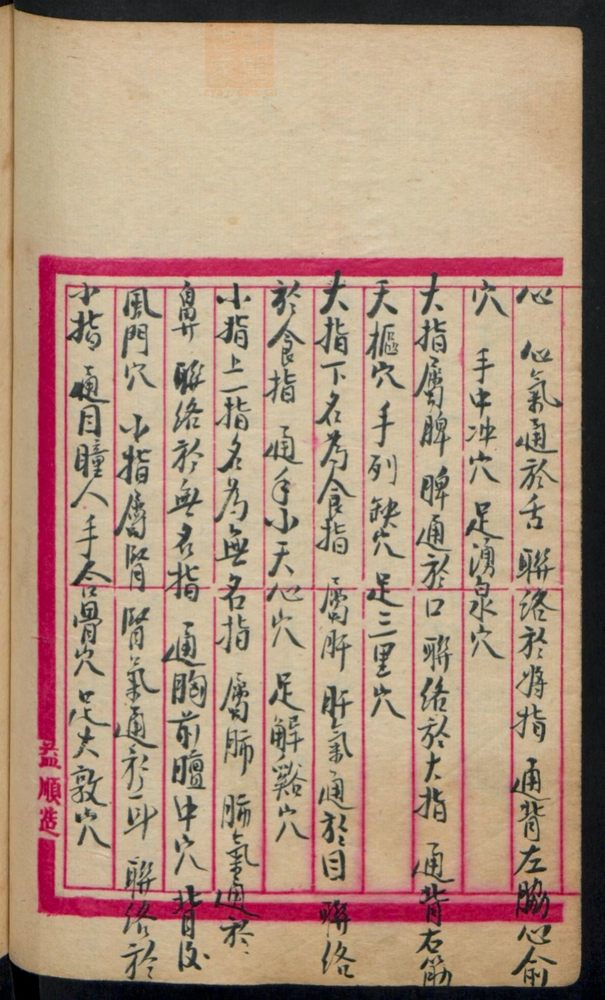 心 心氣通於舌 聯絡於將指 通背左脇心俞
穴 手中冲穴 足湧泉穴
大指屬脾 脾通於口 聯絡於大指 通背右筋
天樞穴 手列缺穴 足三里穴
大指下名為食指 屬肝 肝氣通於目 聯絡
於食指 通手小天心穴 足解谿穴
小指上一指名為無名指 屬肺 肺氣通於
鼻 聯絡於無名指 通胸前膻中穴 背後
風門穴 小指屬腎 腎氣通於耳 聯絡於
小指 通目瞳人 手合骨穴 足大敦穴
益順造